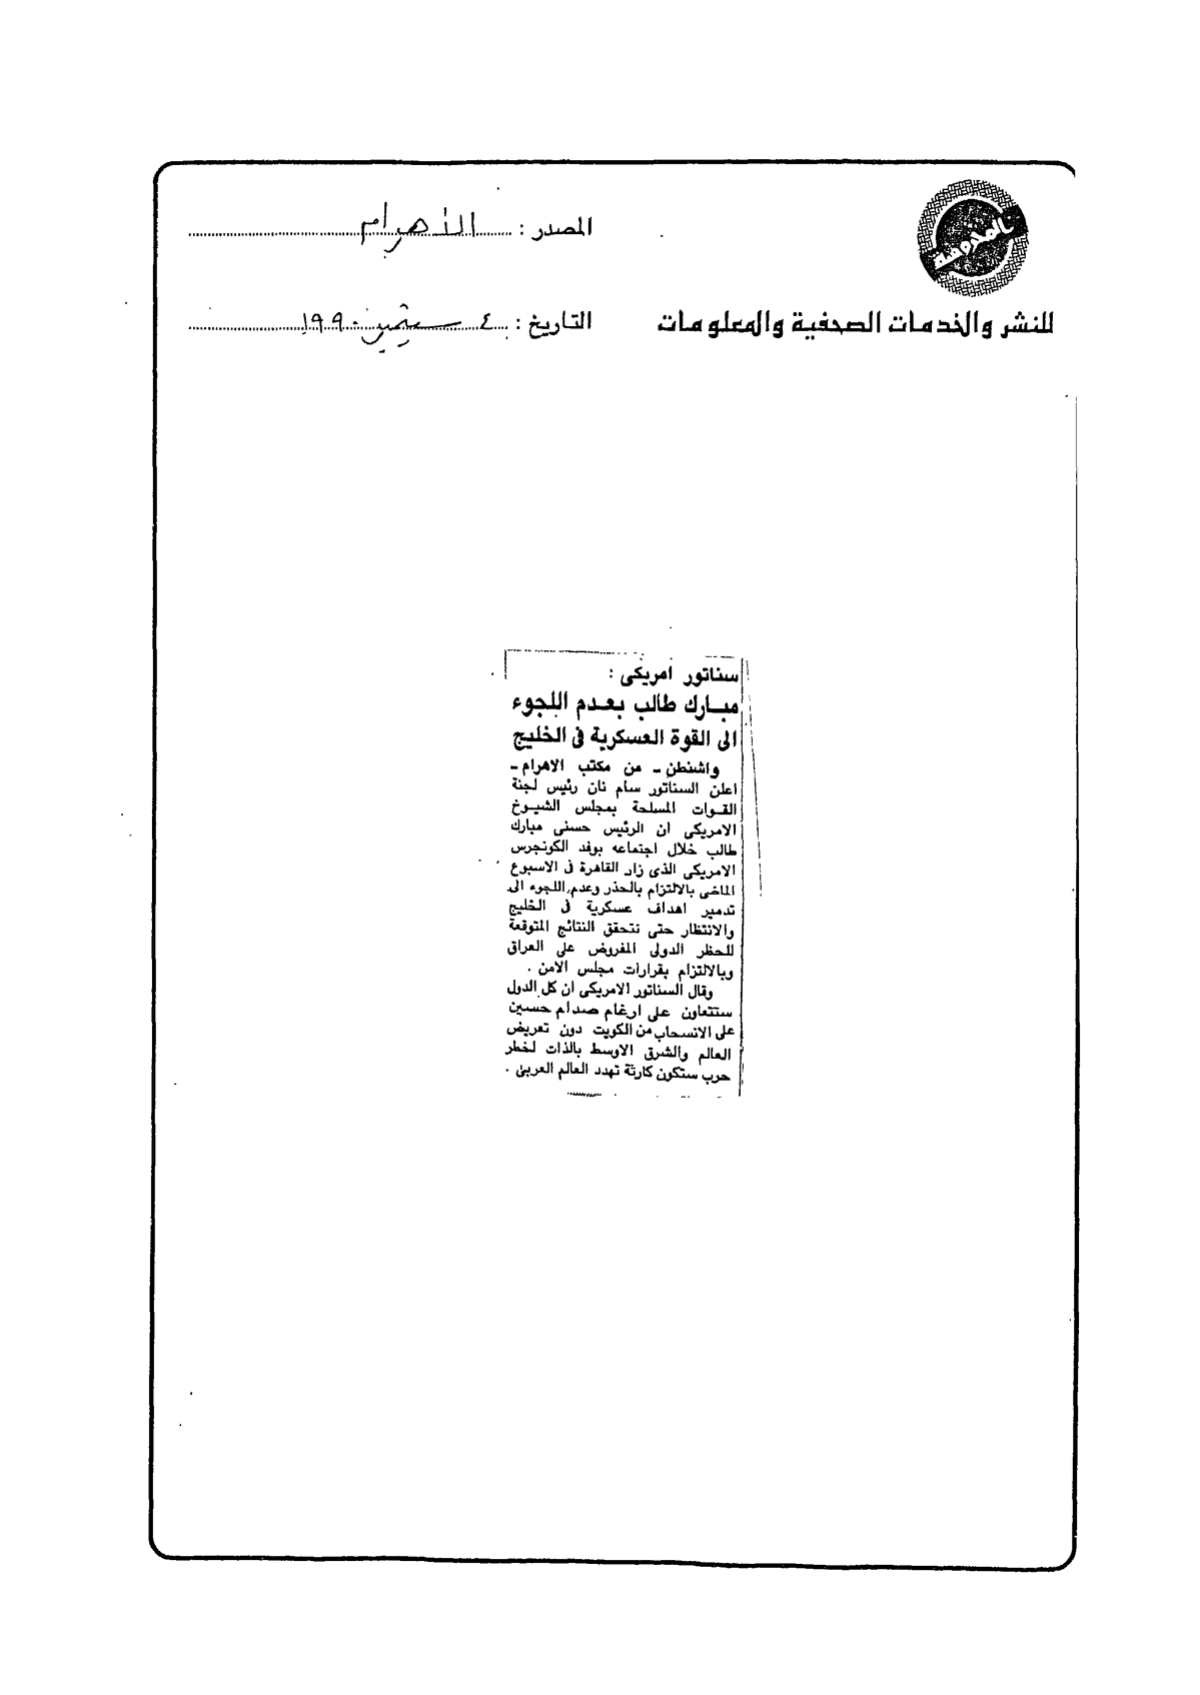 المدونة
للنشر والخدمات الصحفية والمعلومات
المصدر : الأهرام
التاريخ : ٤ سبتمبر ١٩٩٠
سناتور امريكى :
مبارك طالب بعدم اللجوء
الى القوة العسكرية فى الخليج
واشنطن - من مكتب الاهرام -
اعلن السناتور سام نان رئيس لجنة
القوات المسلحة بمجلس الشيوخ
الامريكى ان الرئيس حسنى مبارك
طالب خلال اجتماعه بوفد الكونجرس
الامريكى الذى زار القاهرة فى الاسبوع
الماضى بالالتزام بالحذر وعدم اللجوء الى
تدمير اهداف عسكرية فى الخليج
والانتظار حتى تتحقق النتائج المتوقعة
للحظر الدولى المفروض على العراق
وبالالتزام بقرارات مجلس الامن .
وقال السناتور الامريكى ان كل الدول
ستتعاون على ارغام صدام حسين
على الانسحاب من الكويت دون تعريض
العالم والشرق الاوسط بالذات لخطر
حرب ستكون كارثة تهدد العالم العربى .